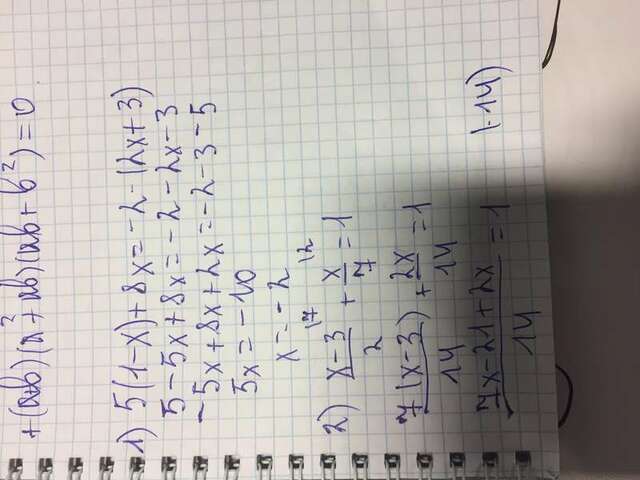 +(a+b)(a²+ab)(ab+b²)=0
1) 5(1-x)+8x=-2-(2x+3)
5-5x+8x=-2-2x-3
-5x+8x+2x=-2-3-5
5x=-10
x=-2
2) \frac{x-3}{2}^{\17} + \frac{x}{7}^{\12} = 1
\frac{7(x-3)}{14} + \frac{2x}{14} = 1
\frac{7x-21+2x}{14} = 1 (·14)